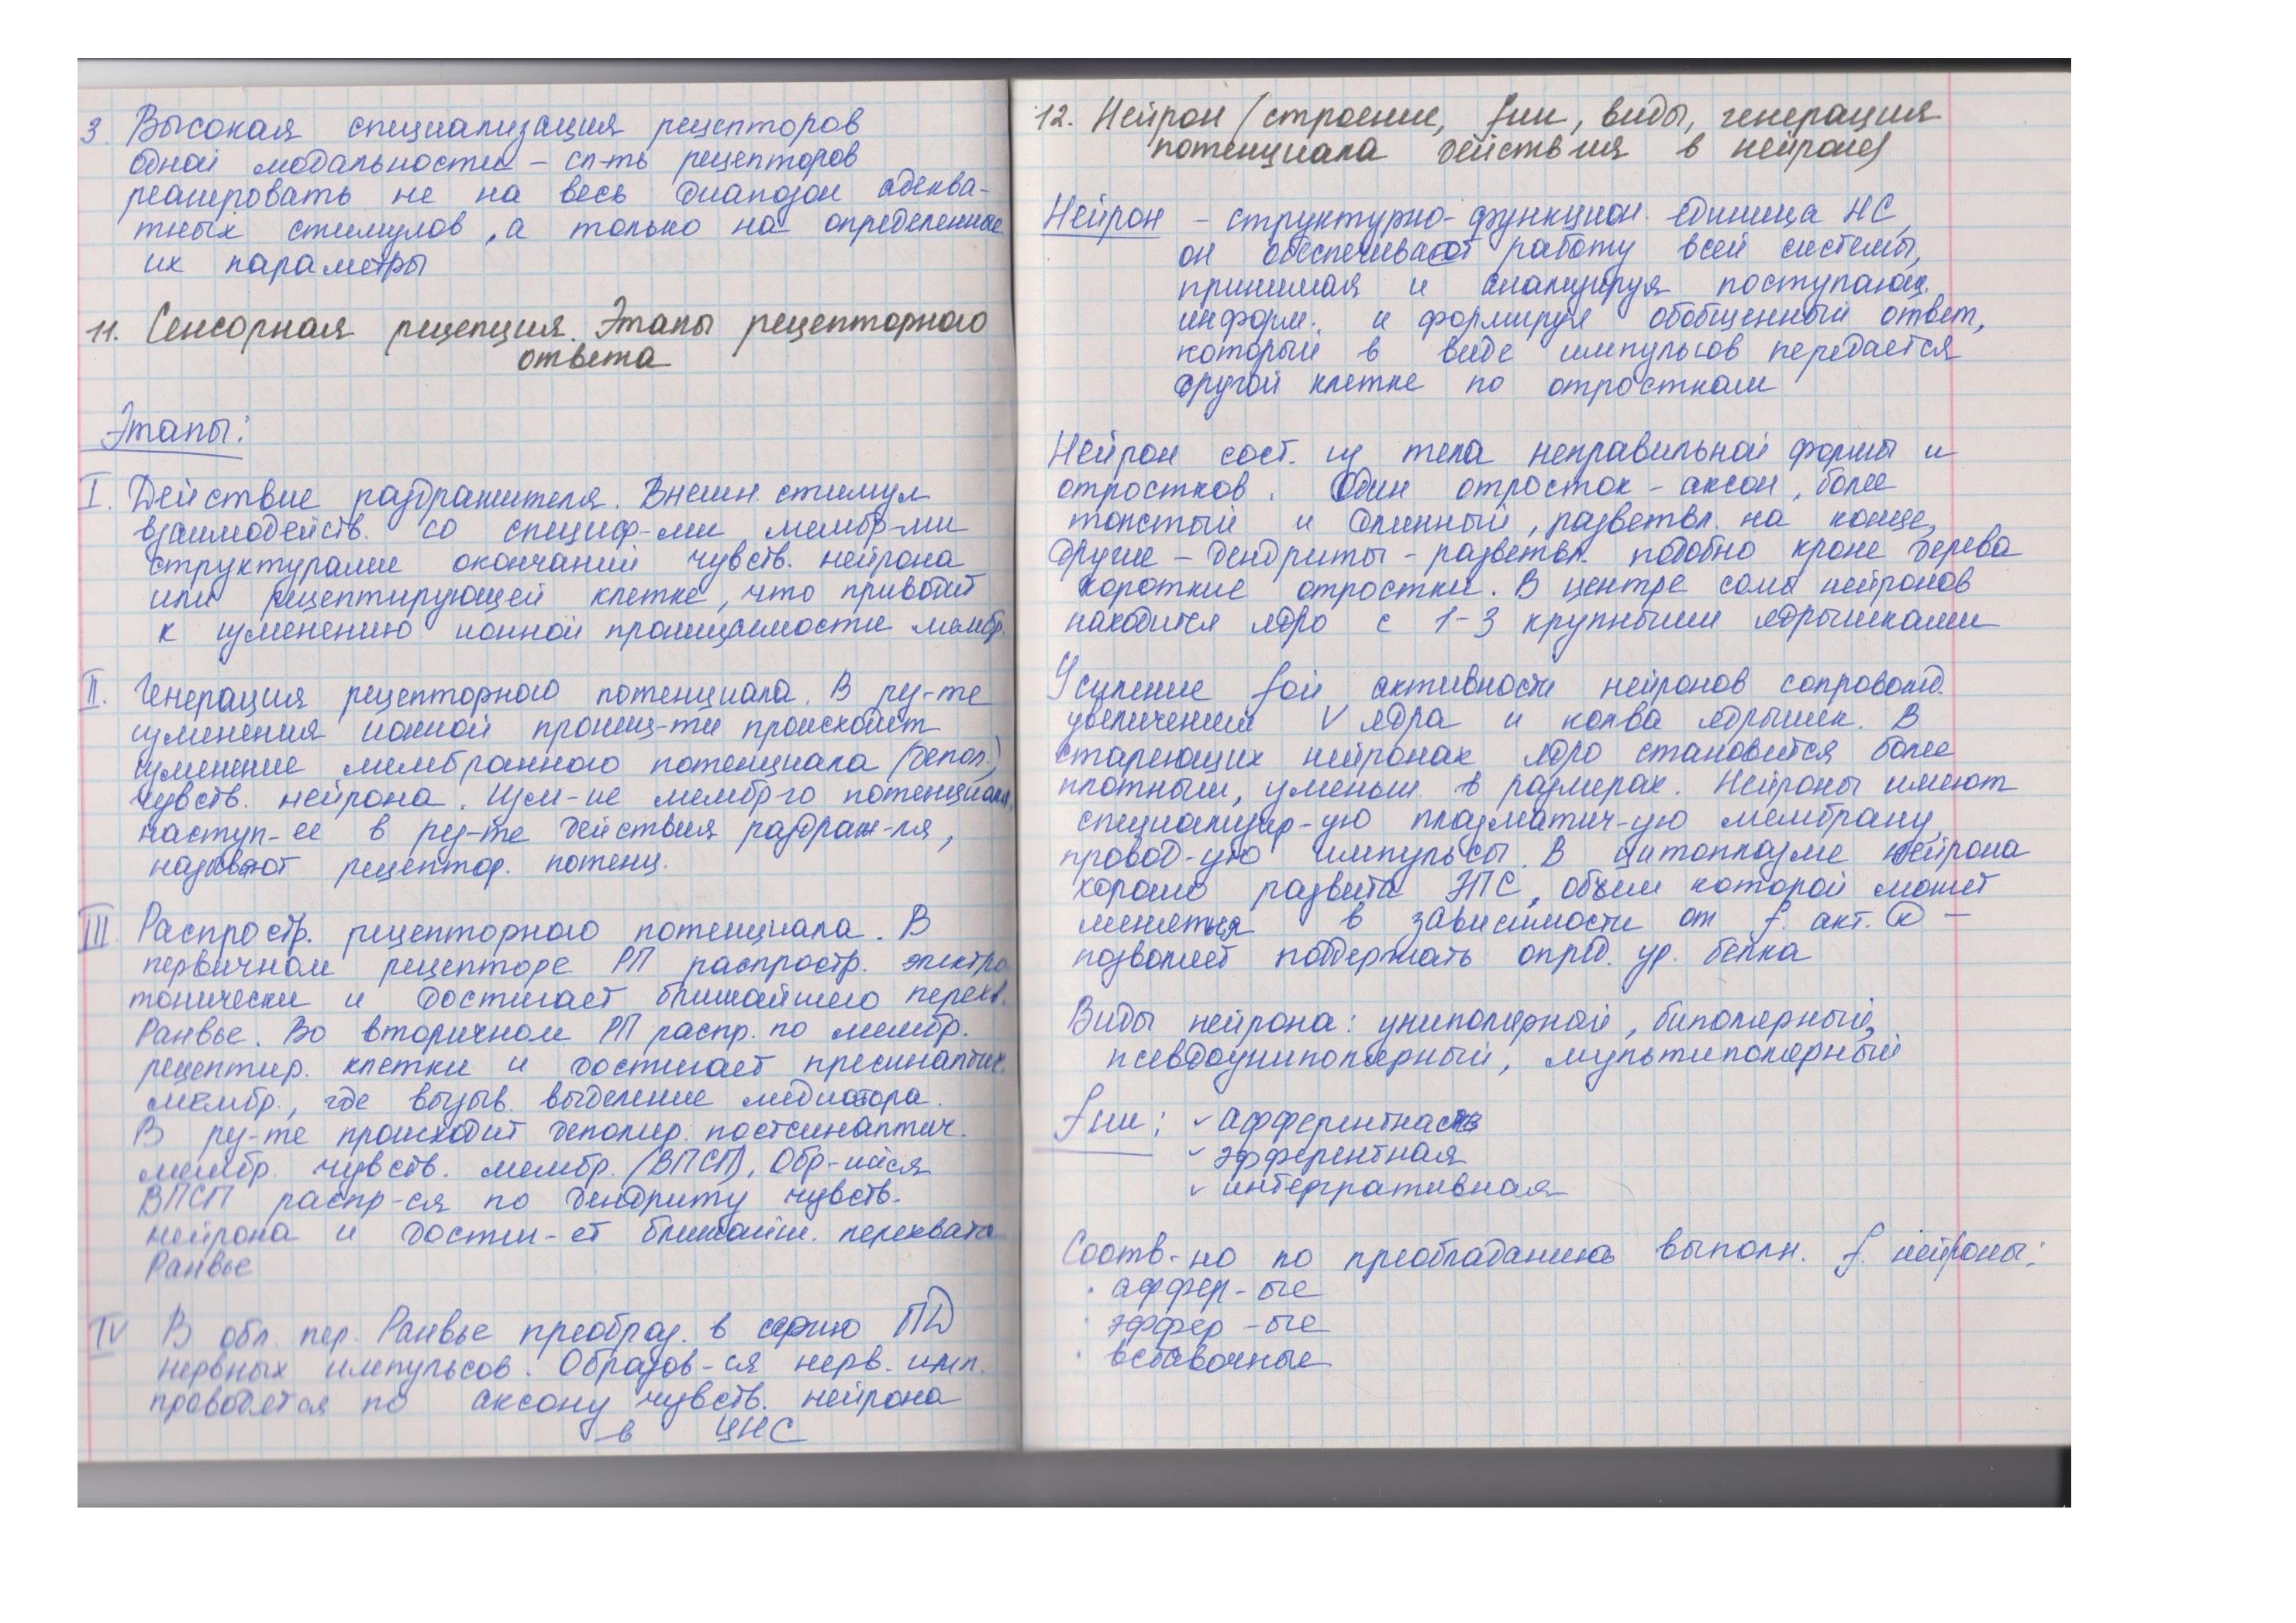 3. Высокая специализация рецепторов
одной модальности – сп-ть рецепторов
реагировать не на весь диапазон адеква-
тных стимулов, а только на определенные
их параметры
11. Сенсорная рецепция. Этапы рецепторного
ответа
Этапы:
I. Действие раздражителя. Внешн. стимул
взаимодейств. со специф-ми мембр-ми
структурами окончаний чувств. нейрона
или рецептирующей клетке, что приводит
к изменению ионной проницаемости мембр.
II. Генерация рецепторного потенциала. В рез-те
изменения ионной прониц-ти происходит
изменение мембранного потенциала (депол.)
чувств. нейрона. Изм-ие мембр-го потенциала,
наступ-ее в рез-те действия раздраж-ля,
называют рецептор. потенц.
III. Распростр. рецепторного потенциала. В
первичном рецепторе РП распростр. электро
тонически и достигает ближайшего перехв.
Ранвье. Во вторичном РП распр. по мембр.
рецептир. клетки и достигает пресинаптич.
мембр., где вызыв. выделение медиатора.
В рез-те происходит деполяр. постсинаптич.
мембр. чувств. мембр. (ВПСП). Обр-ийся
ВПСП распр-ся по дендриту чувств.
нейрона и достиг-ет ближайш. перехвата
Ранвье
IV В обл. пер. Ранвье преобраз. в серию ПД
нервных импульсов. Образов-ся нерв. имп.
проводятся по аксону чувств. нейрона
в ЦНС
12. Нейрон (строение, fии, виды, генерация
потенциала действия в нейроне)
Нейрон – структурно-функцион. единица НС,
он обеспечивает работу всей системы,
принимая и анализируя поступающ.
информ. и формируя обобщенный ответ,
который в виде импульсов передается
другой клетке по отросткам
Нейрон сост. из тела неправильной формы и
отростков. Один отросток – аксон, более
толстый и длинный, разветвл. на конце,
другие – дендриты – разветвл. подобно кроне дерева
короткие отростки. В центре сома нейронов
находится ядро с 1-3 крупными ядрышками
Усиление fой активности нейронов сопровожд.
увеличением V ядра и колва ядрышек. В
стареющих нейронах ядро становится более
плотным, уменьш. в размерах. Нейроны имеют
специализир-ую плазматич-ую мембрану,
провод-ую импульсы. В цитоплазме нейрона
хорошо развита ЭПС, объем которой может
меняться в зависимости от f. акт. к –
позволяет поддержать опред. ур. белка
Виды нейрона: униполярный, биполярный,
псевдоуниполярный, мультиполярный
fии: ✓ афферентная
✓ эфферентная
✓ интегративная
Соотв-но по преобладанию выполн. f. нейроны:
· аффер-ые
· эффер-ые
· вставочные